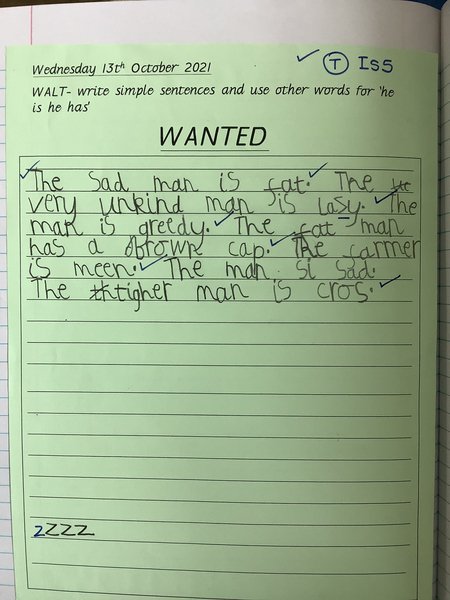 Wednesday 13th October 2021
T Iss
WALT- write simple sentences and use other words for 'he
is he has'
WANTED
The Sad man is fat. The
very unkind man is lasy. The
man is greedy. The fat man
has a brown cap. The farmer
is meen. The man si sad.
The tigher man is cros.
zZZZ